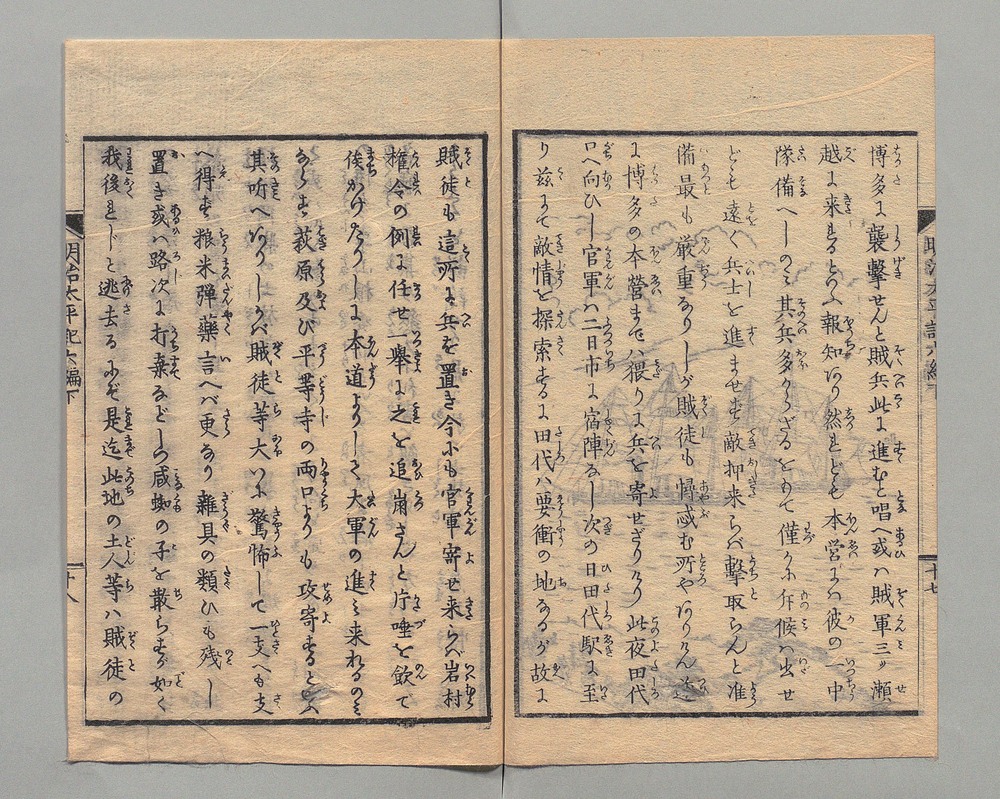 博多に襲撃せんと賊兵此に進むと唱へ或ハ賊軍三ツ瀬
越に来るとの報知あり然れども本営にハ彼の一中
隊備へしのミ其兵多からざるをもて僅かに斥候ハ出せ
ども遠く兵士を進ませず敵押来らバ撃取らんと准
備最も厳重なりしが賊徒も懼惑む所やありけん
に博多の本営までハ猥りに兵を寄せざりけり此夜田代
口へ向ひし官軍ハ二日市に宿陣なし次の日田代駅に至
り茲にて敵情を探索するに田代ハ要衝の地なるが故に
明治太平記六編下
十七
賊徒も這所に兵を置き今にも官軍寄せ来らバ岩村
権令の例に任せ一挙に之を追崩さんと片唾を飲て
俟かけたりしに本道よりして大軍の進ミ来れるのミ
ならず萩原及び平等寺の両口よりも攻寄するといふ
其听へありしかバ賊徒等大いに驚怖して一支へも支
へ得ず粮米弾薬言へバ更なり雑具の類ひも残し
置き或ハ路次に打棄などしつ蜘の子を散らすが如く
我後れじと逃去るにぞ是迄此地の土人等ハ賊徒の
明治太平記六編下
十八